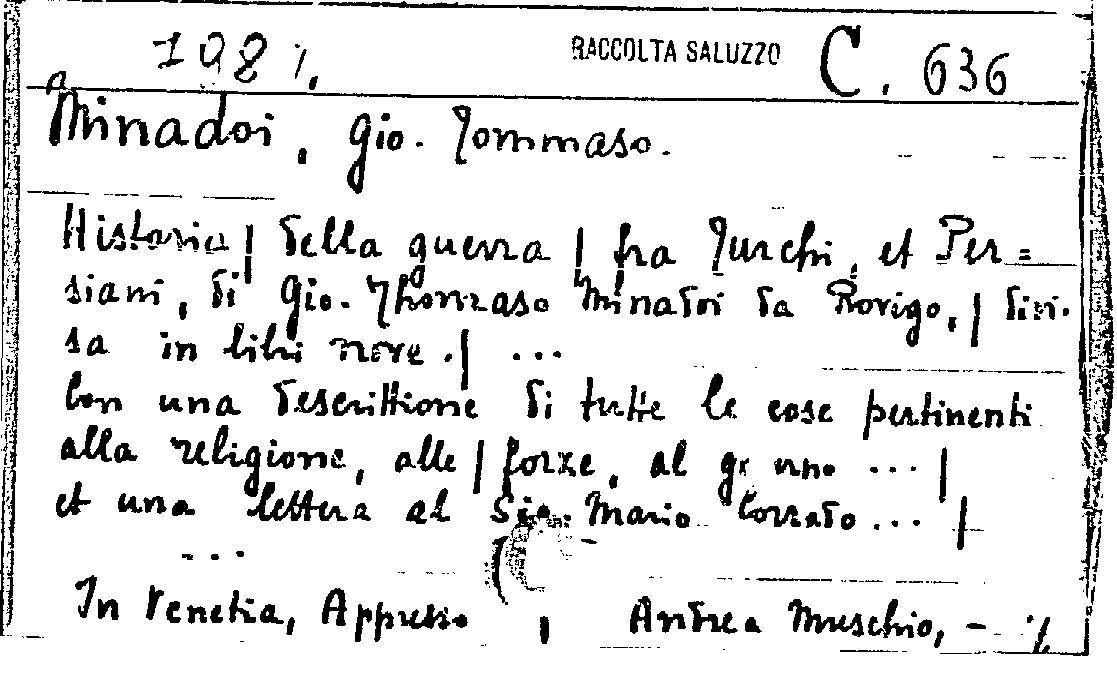 1981. RACCOLTA SALUZZO C. 636
Minadoi, Gio. Tommaso.
Historia | della guerra | fra Turchi, et Per=
siani, di Gio. Thomaso Minadoi da Rovigo, | divi-
sa in libri nove. | ...
Con una descrittione di tutte le cose pertinenti
alla religione, alle | forze, al ... |
et una lettera al Sig. Mario Corrado ... |
...
In Venetia, Appresso | Andrea Muschio, - ./.